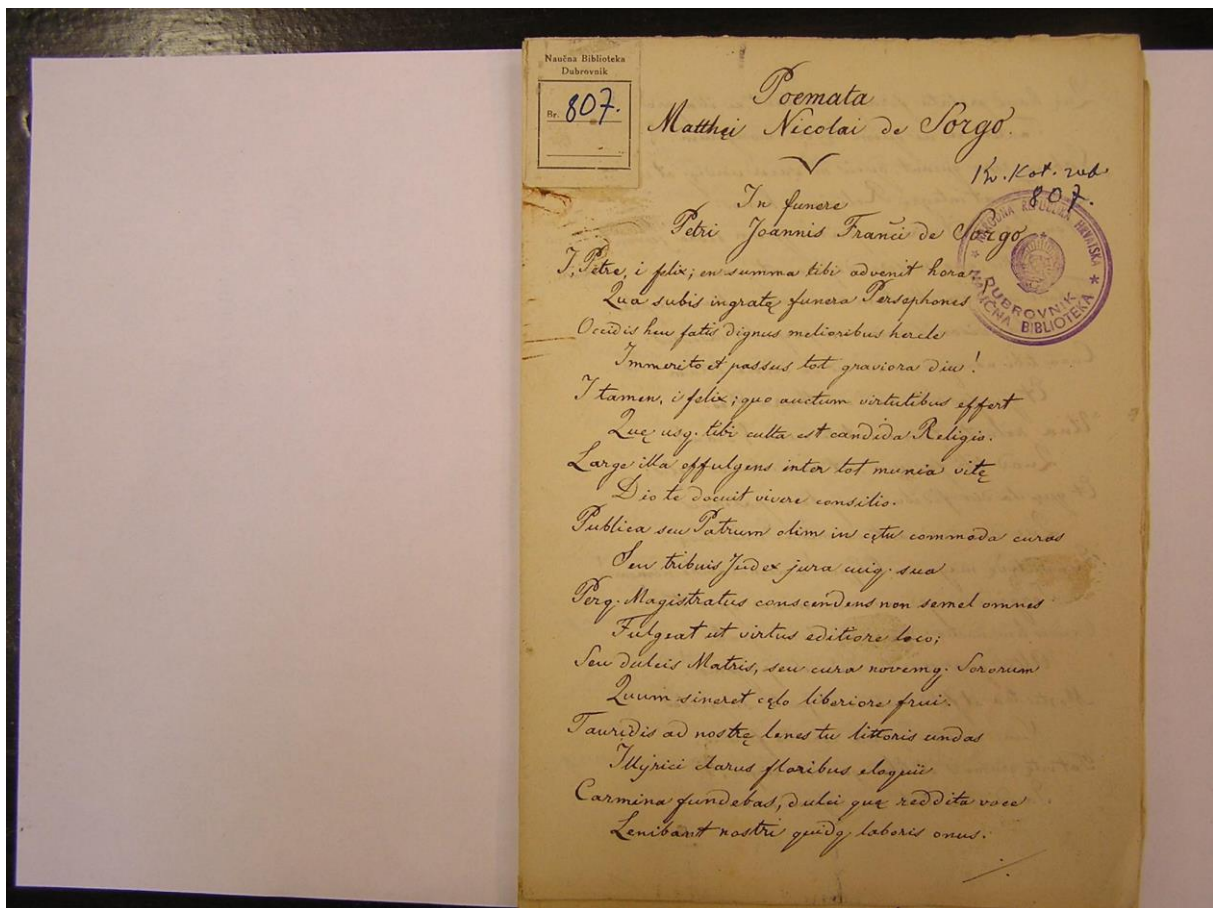 Naučna Biblioteka
Dubrovnik
Br. 807.
Poemata
Matthęi Nicolai de Sorgo.
Kat. rub.
807.
In funere
Petri Joannis Franči de Sorgo
NARODNA REPUBLIKA HRVATSKA
NAUČNA BIBLIOTEKA
DUBROVNIK
I, Petre, i felix; en summa tibi advenit hora
Qua subis ingratę funera Persephones
Occidis heu fatis dignus melioribus hercle
Immerito et passus tot graviora diu!
I tamen, i felix; quo auctum virtutibus effert
Quę usq. tibi culta est candida Religio.
Large illa effulgens inter tot munia vitę
Dio te docuit vivere consilio.
Publica seu Patrum olim in cętu commoda curas
Seu tribuis Judex jura cuiq. sua
Perq. Magistratus conscendens non semel omnes
Fulgeat ut virtus editiore loco;
Seu dulcis Matris, seu cura novemq. Sororum
Quum sineret cęlo liberiore frui.
Tauridis ad nostrę lenes tu littoris undas
Illyrici clarus floribus eloquii
Carmina fundebas, dulci quę reddita voce
Lenibant nostri quidq. laboris onus.